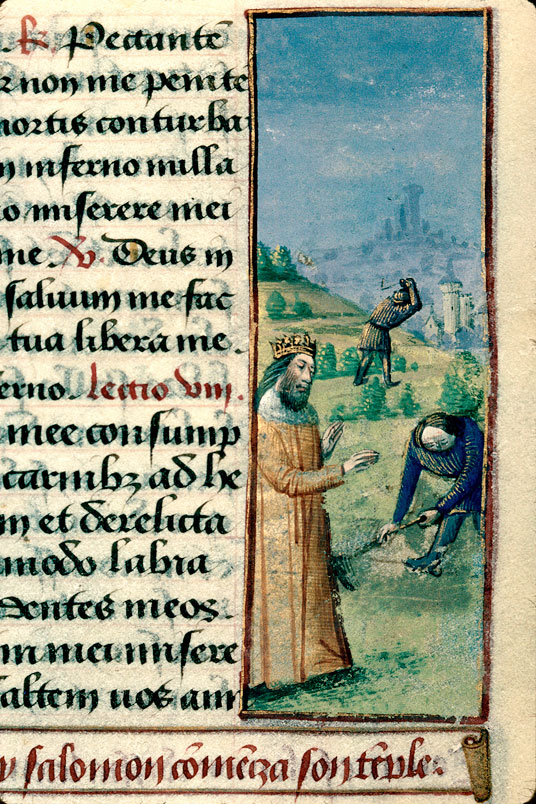 ℟. Peccantē
r non me penite
mortis conturba
m inferno nulla
o miserere mei
me. ℣. Deus in
saluum me fac
tua libera me.
erno. lectio viii.
mee consump
carnibꝫ ad he
m et derelicta
modo labia
dentes meos.
mi mei misere
saltem uos ami
salomon cōmēza son tēple.